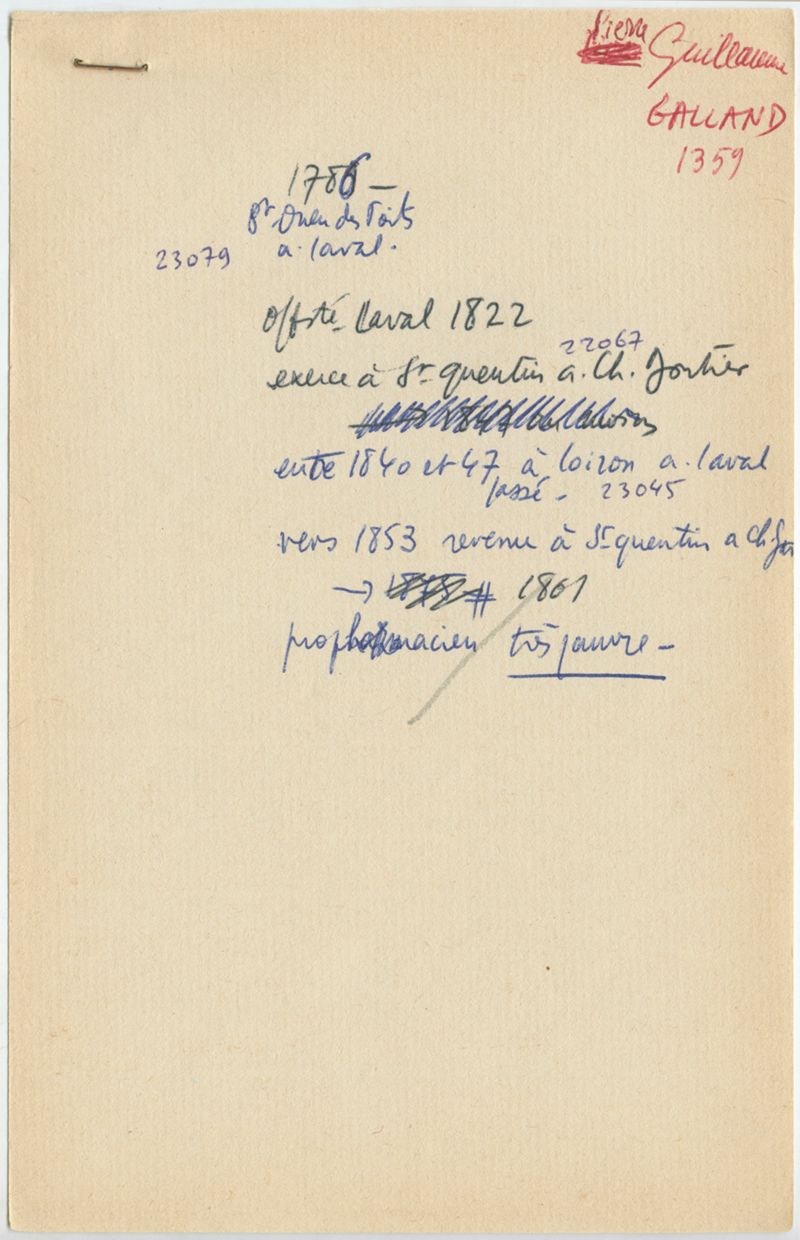 Pierre Guillaume
GALLAND
1359
1786 —
St Ouen des Toits
a. Laval.
23079
offsté Laval 1822
22067
exerce à St quentin a. Ch. Gontier
entre 1840 et 47 à Loiron a. Laval
passé - 23045
vers 1853 revenu à St quentin a Ch. Gon
→ # 1861
pharmacien très pauvre —